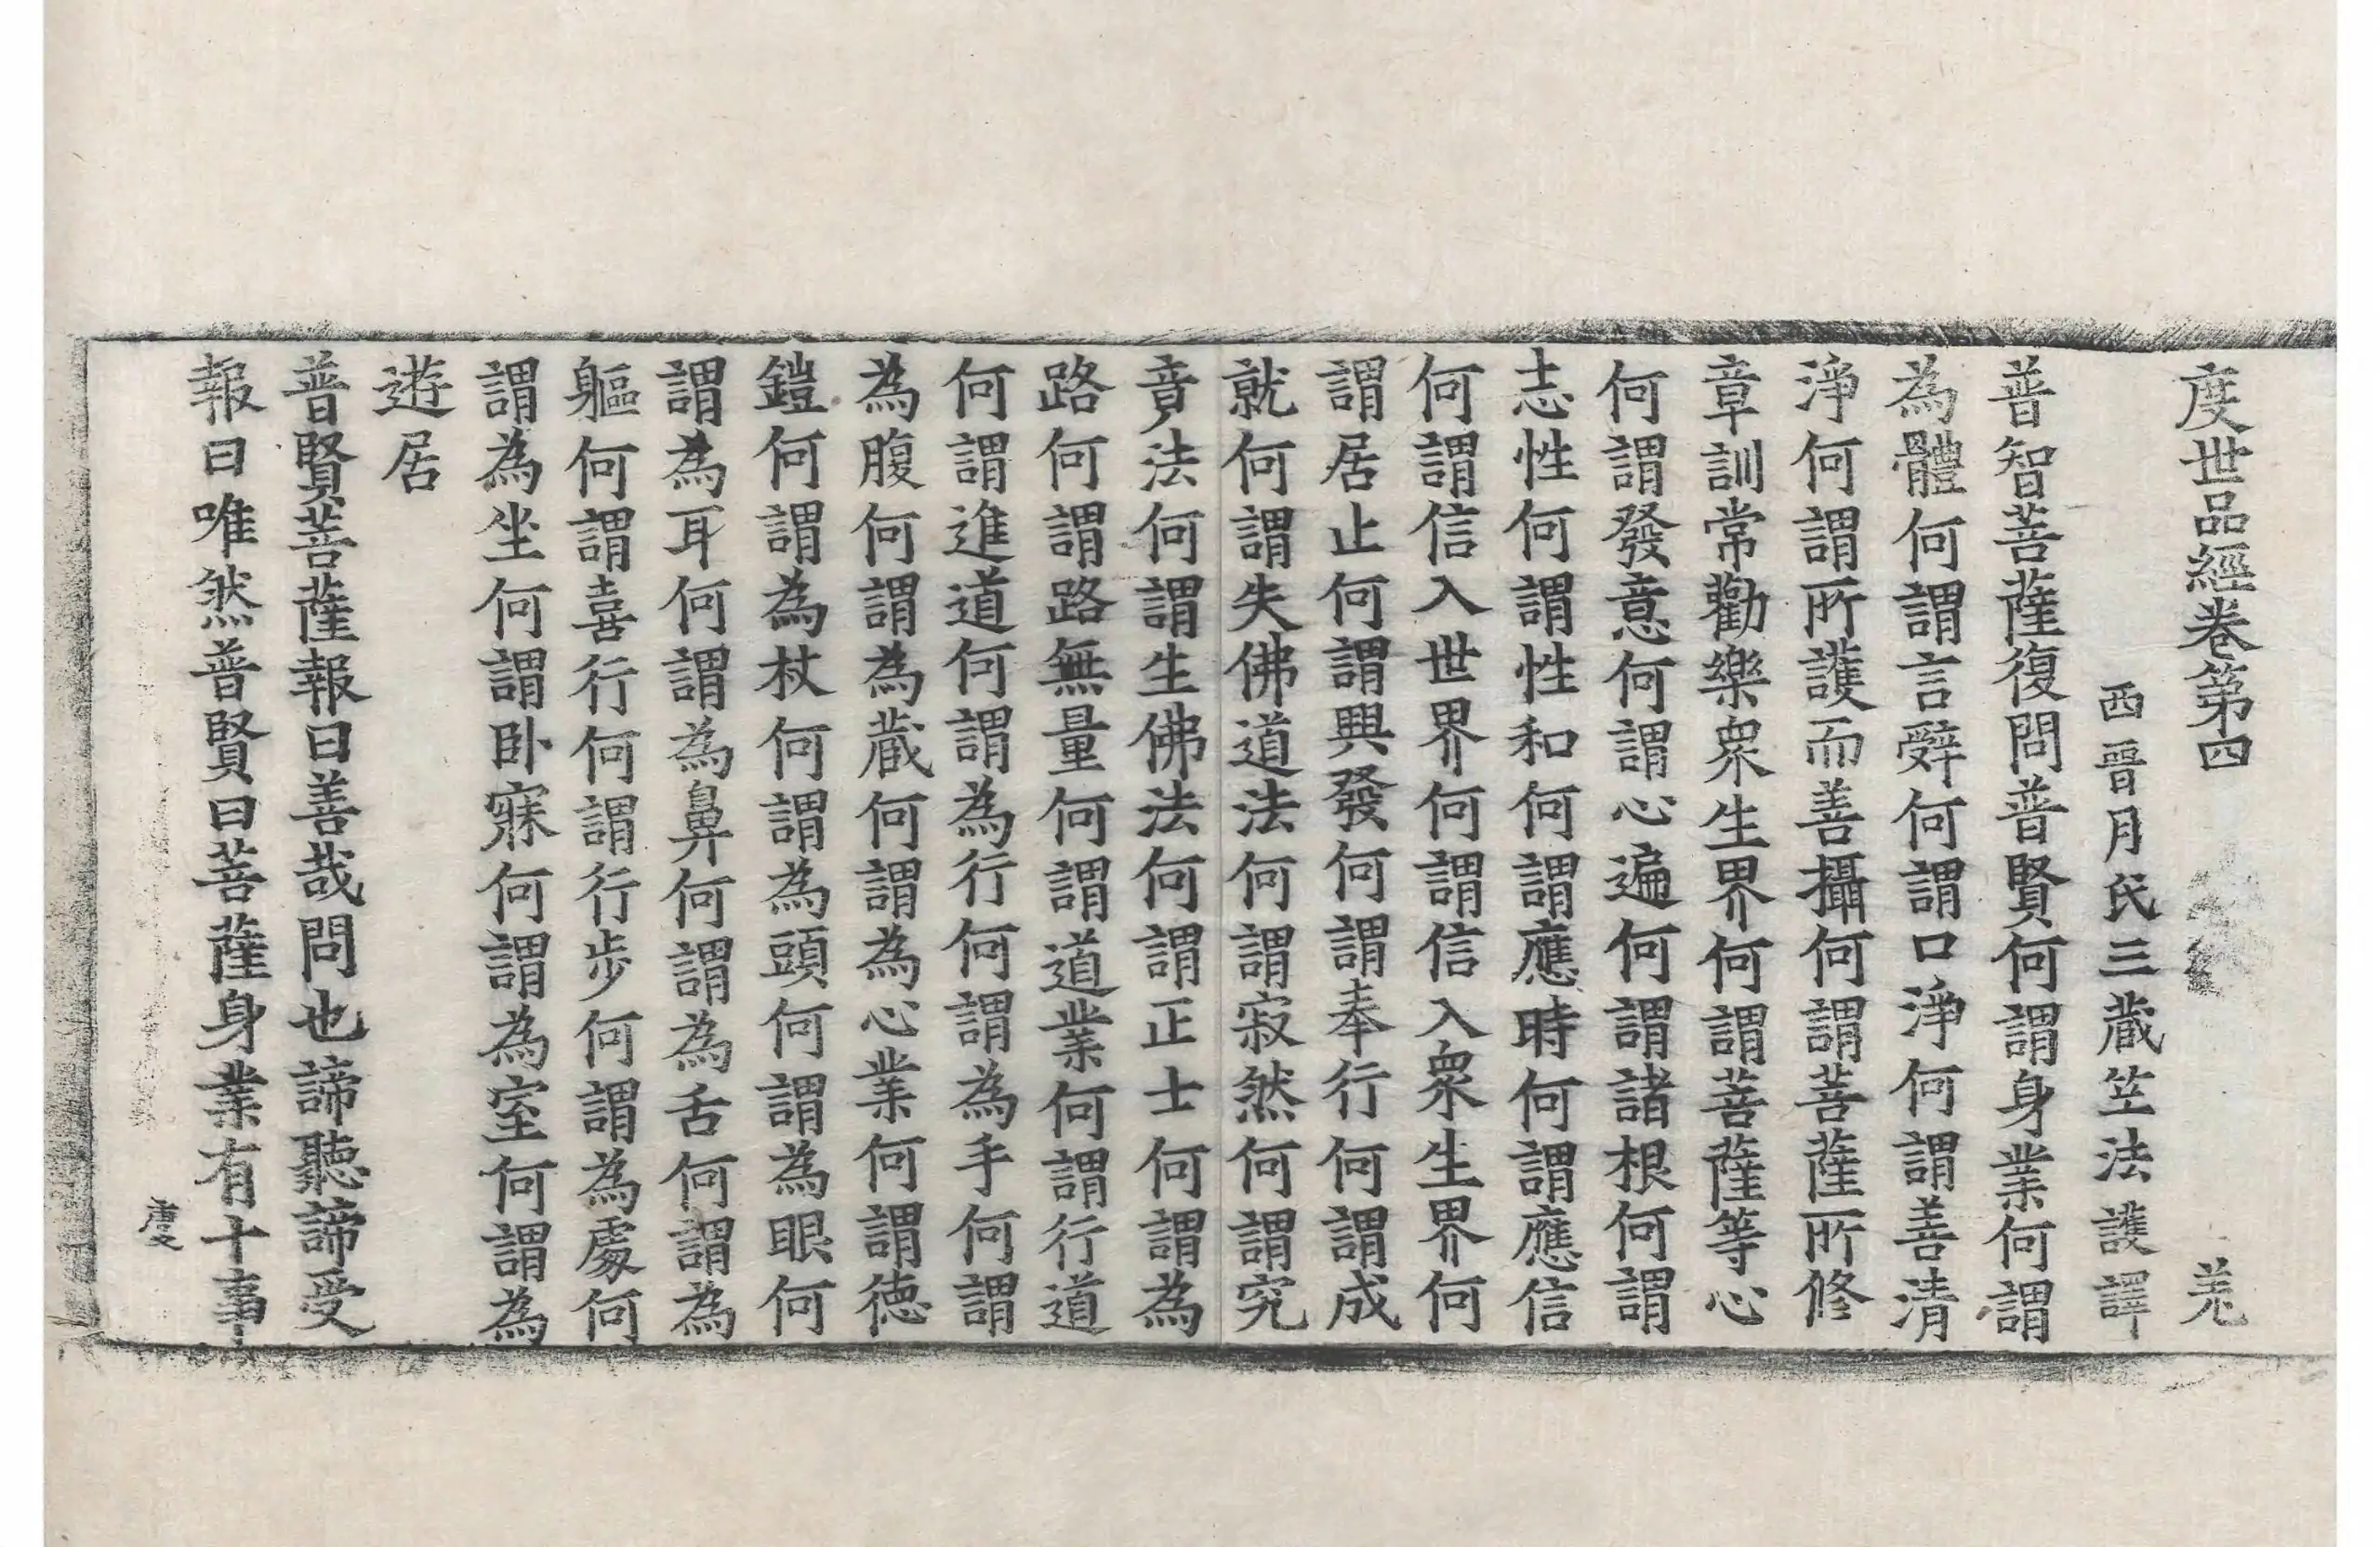 度世品經卷第四 羌
西晉月氏三藏竺法護譯
普智菩薩復問普賢何謂身業何謂
為體何謂言辭何謂口淨何謂善清
淨何謂所護而善攝何謂菩薩所修
章訓常勸樂衆生界何謂菩薩等心
何謂發意何謂心遍何謂諸根何謂
志性何謂性和何謂應時何謂應信
何謂信入世界何謂信入衆生界何
謂居止何謂興發何謂奉行何謂成
就何謂失佛道法何謂寂然何謂究
竟法何謂生佛法何謂正士何謂為
路何謂路無量何謂道業何謂行道
何謂進道何謂為行何謂為手何謂
為腹何謂為藏何謂為心業何謂德
鎧何謂為杖何謂為頭何謂為眼何
謂為耳何謂為鼻何謂為舌何謂為
軀何謂喜行何謂行步何謂為處何
謂為坐何謂卧寐何謂為室何謂為
遊居
普賢菩薩報曰善哉問也諦聽諦受
報曰唯然普賢曰菩薩身業有十事